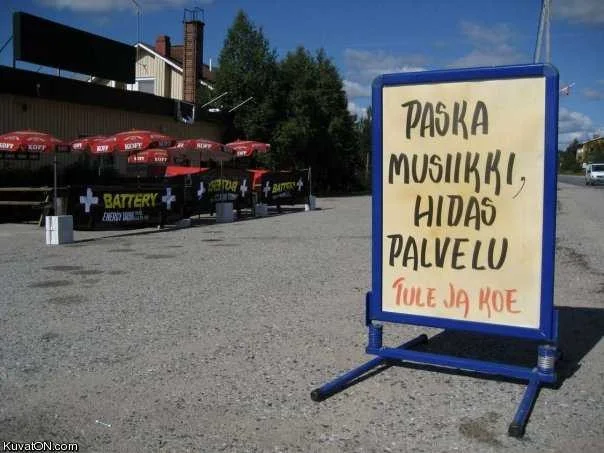 KOFF KOFF KOFF KOFF KOFF
BATTERY
ENERGY DRINK
BATTERY
PASKA
MUSIIKKI,
HIDAS
PALVELU
TULE JA KOE
KuvatON.com